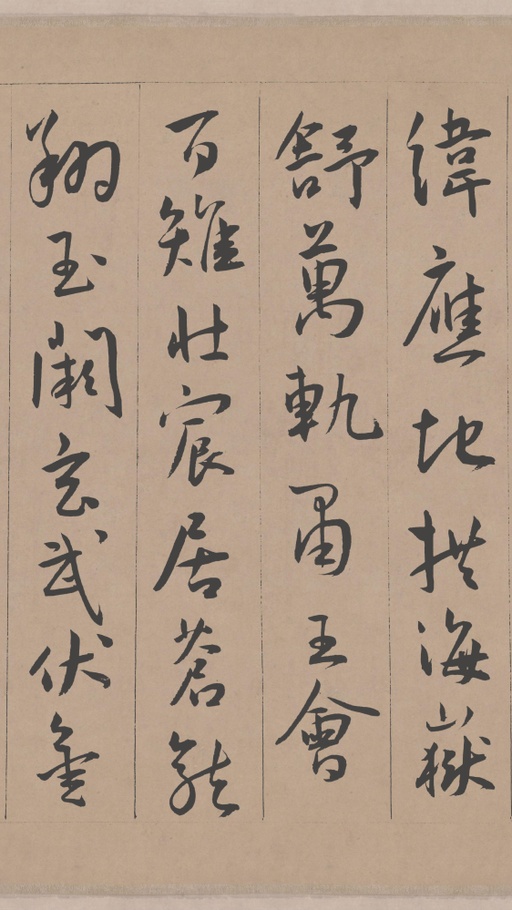 緯應地拱海嶽
舒萬軌王會
百雉壯宸居蒼龍
翔玉闕玄武伏金